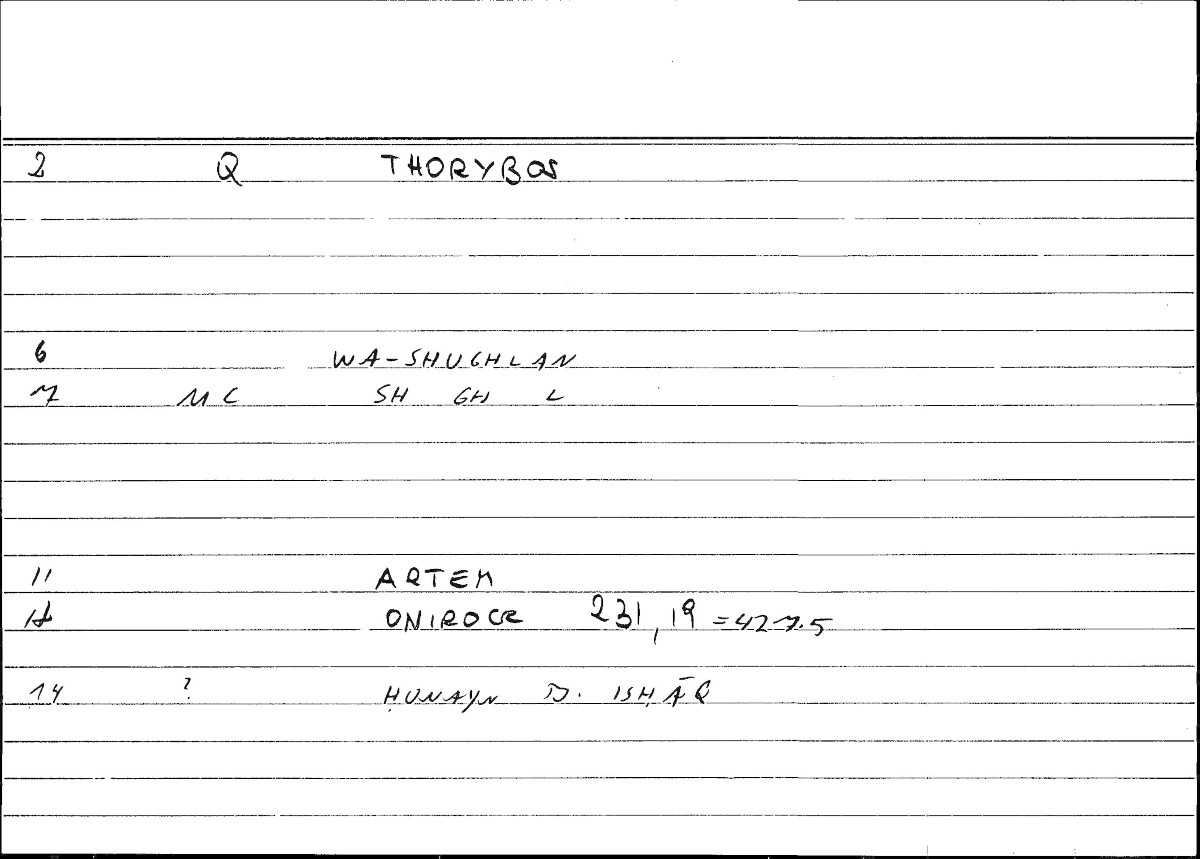 2 Q THORYBOS
6 WA-SHUGHLAN
7 MC SH GH L
11 ARTEM
12 ONIROCR 231,19 =427.5
14 ? ḤUNAYN B. ISḤĀQ